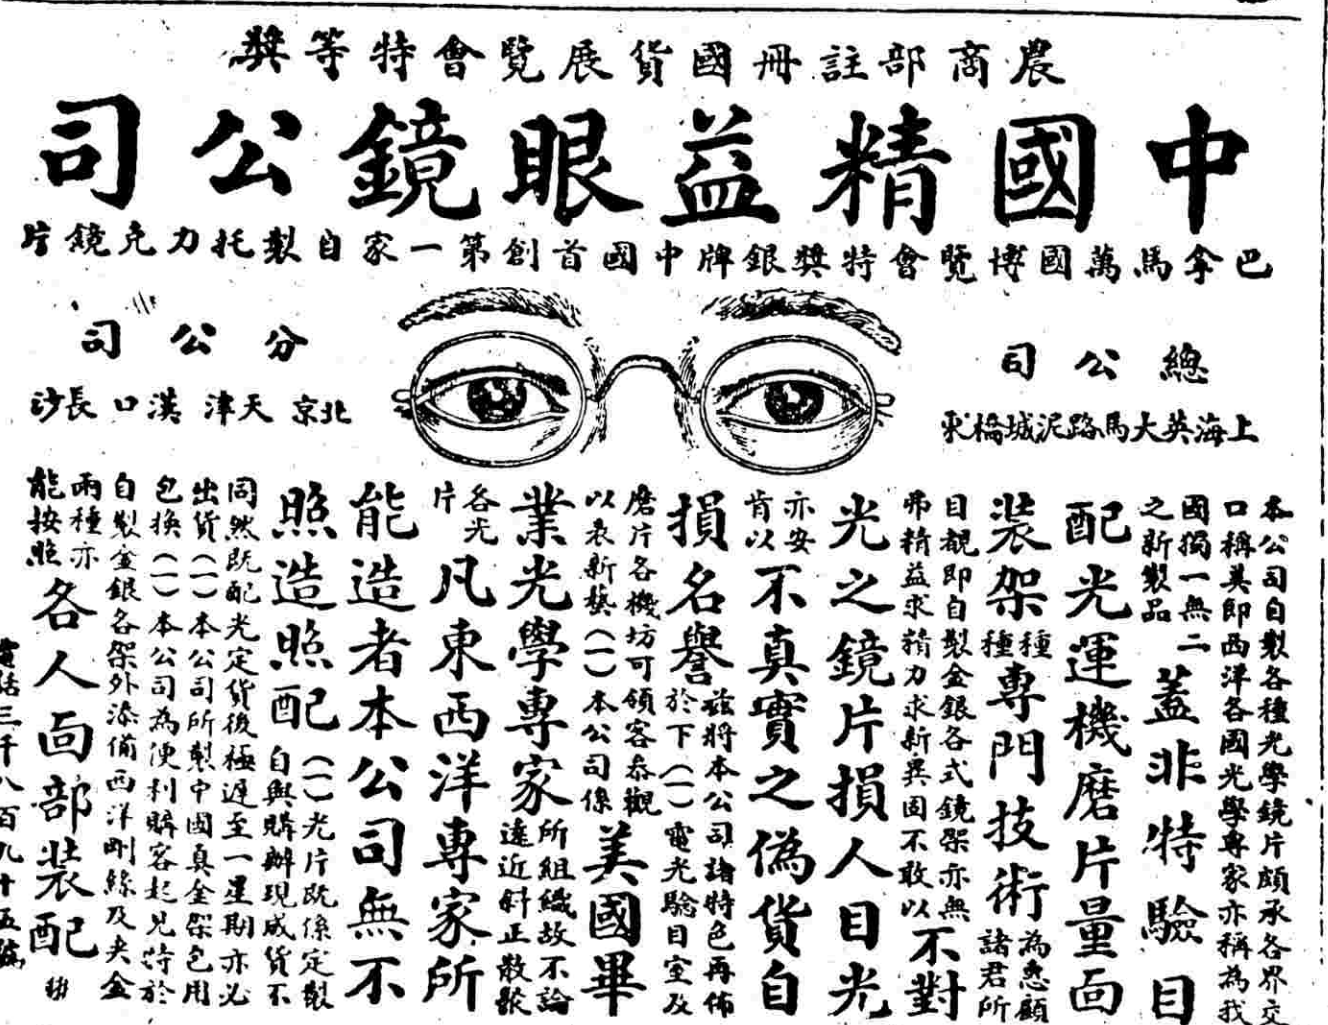 農商部註冊國貨展覽會特等獎
中國精益眼鏡公司
巴拿馬萬國博覽會特獎銀牌中國首創第一家自製托力克鏡片
總公司
上海英大馬路泥城橋東
分公司
北京 天津 漢口 長沙
本公司自製各種光學鏡片頗承各界交
口稱美即西洋各國光學專家亦稱為我
國獨一無二
之新製品
蓋非特驗目
配光運機磨片量面
裝架
種種
專門技術
為悉顧
諸君所
目覩即自製金銀各式鏡架亦無
弗精益求精力求新異固不敢以
不對
光之鏡片損人目光
亦安
肯以
不真實之偽貨自
損名譽
茲將本公司諸特色再佈
於下(一)電光驗目室及
磨片各機坊可領客參觀
以表新藝(一)本公司係
美國畢
業光學專家
所組織故不論
遠近斜正散聚
各光
片
凡東西洋專家所
能造者本公司無不
照造照配
(一)光片既係定製
自與購辦現成貨不
同然既配光定貨後極遲至一星期亦必
出貨(一)本公司所製中國真金架包用
包換(一)本公司為便利購客起見特於
自製金銀各架外添備西洋剛絲及夾金
兩種亦
能按照
各人面部裝配
電話三千八百九十五號